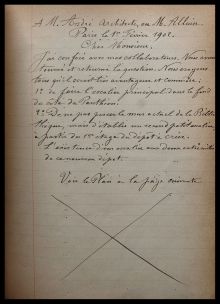 A M. André Architecte, ou M. Pillion.
Paris le 1er Février 1902.
Cher Monsieur,
J'ai conféré avec mes collaborateurs. Nous avons
tourné et retourné la question. Nous croyons
tous qu'il serait très avantageux et commode:
1° de faire l'escalier principal dans le fond
du côté du Panthéon
2° De ne pas percer le mur actuel de la Biblio
thèque, mais d'établir un second petit escalier
à partir du 1er étage du dépôt à créer.
L'existence d'un escalier aux deux extrémités
de ce nouveau dépôt.
Voir le Plan à la page suivante